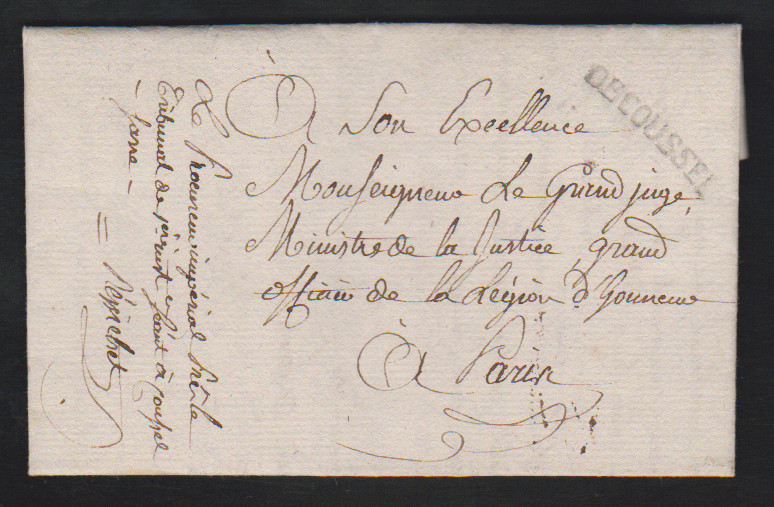 DECOUSSEL
à Son Excellence
Monseigneur Le Grand juge,
Ministre de la Justice, grand
officier de la Légion d'Honneur
à Paris
Le Procureur impérial près le
Tribunal de 1ère inst. séant à Coussel
Sarre